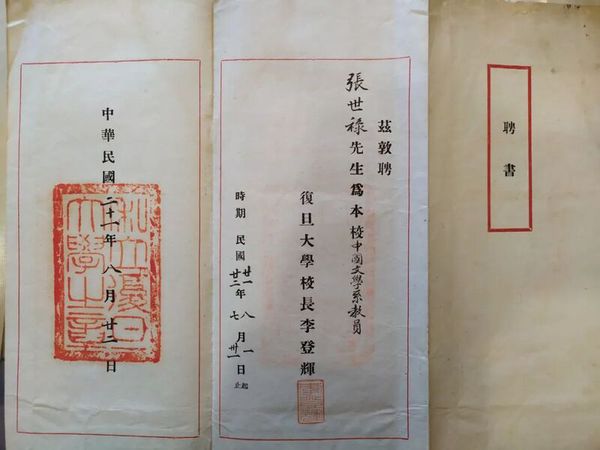 聘書
茲敦聘
張世祿先生爲本校中國文學系教員
復旦大學校長李登輝
時期 民國 廿一年八月一日起
廿二 七 卅一 止
中華民國二十一年八月廿二日
私立復旦
大學之章